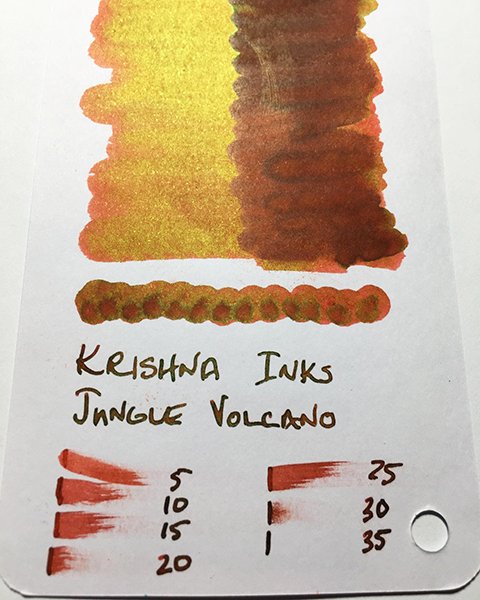 KRISHNA INKS
JUNGLE VOLCANO
5
10
15
20
25
30
35